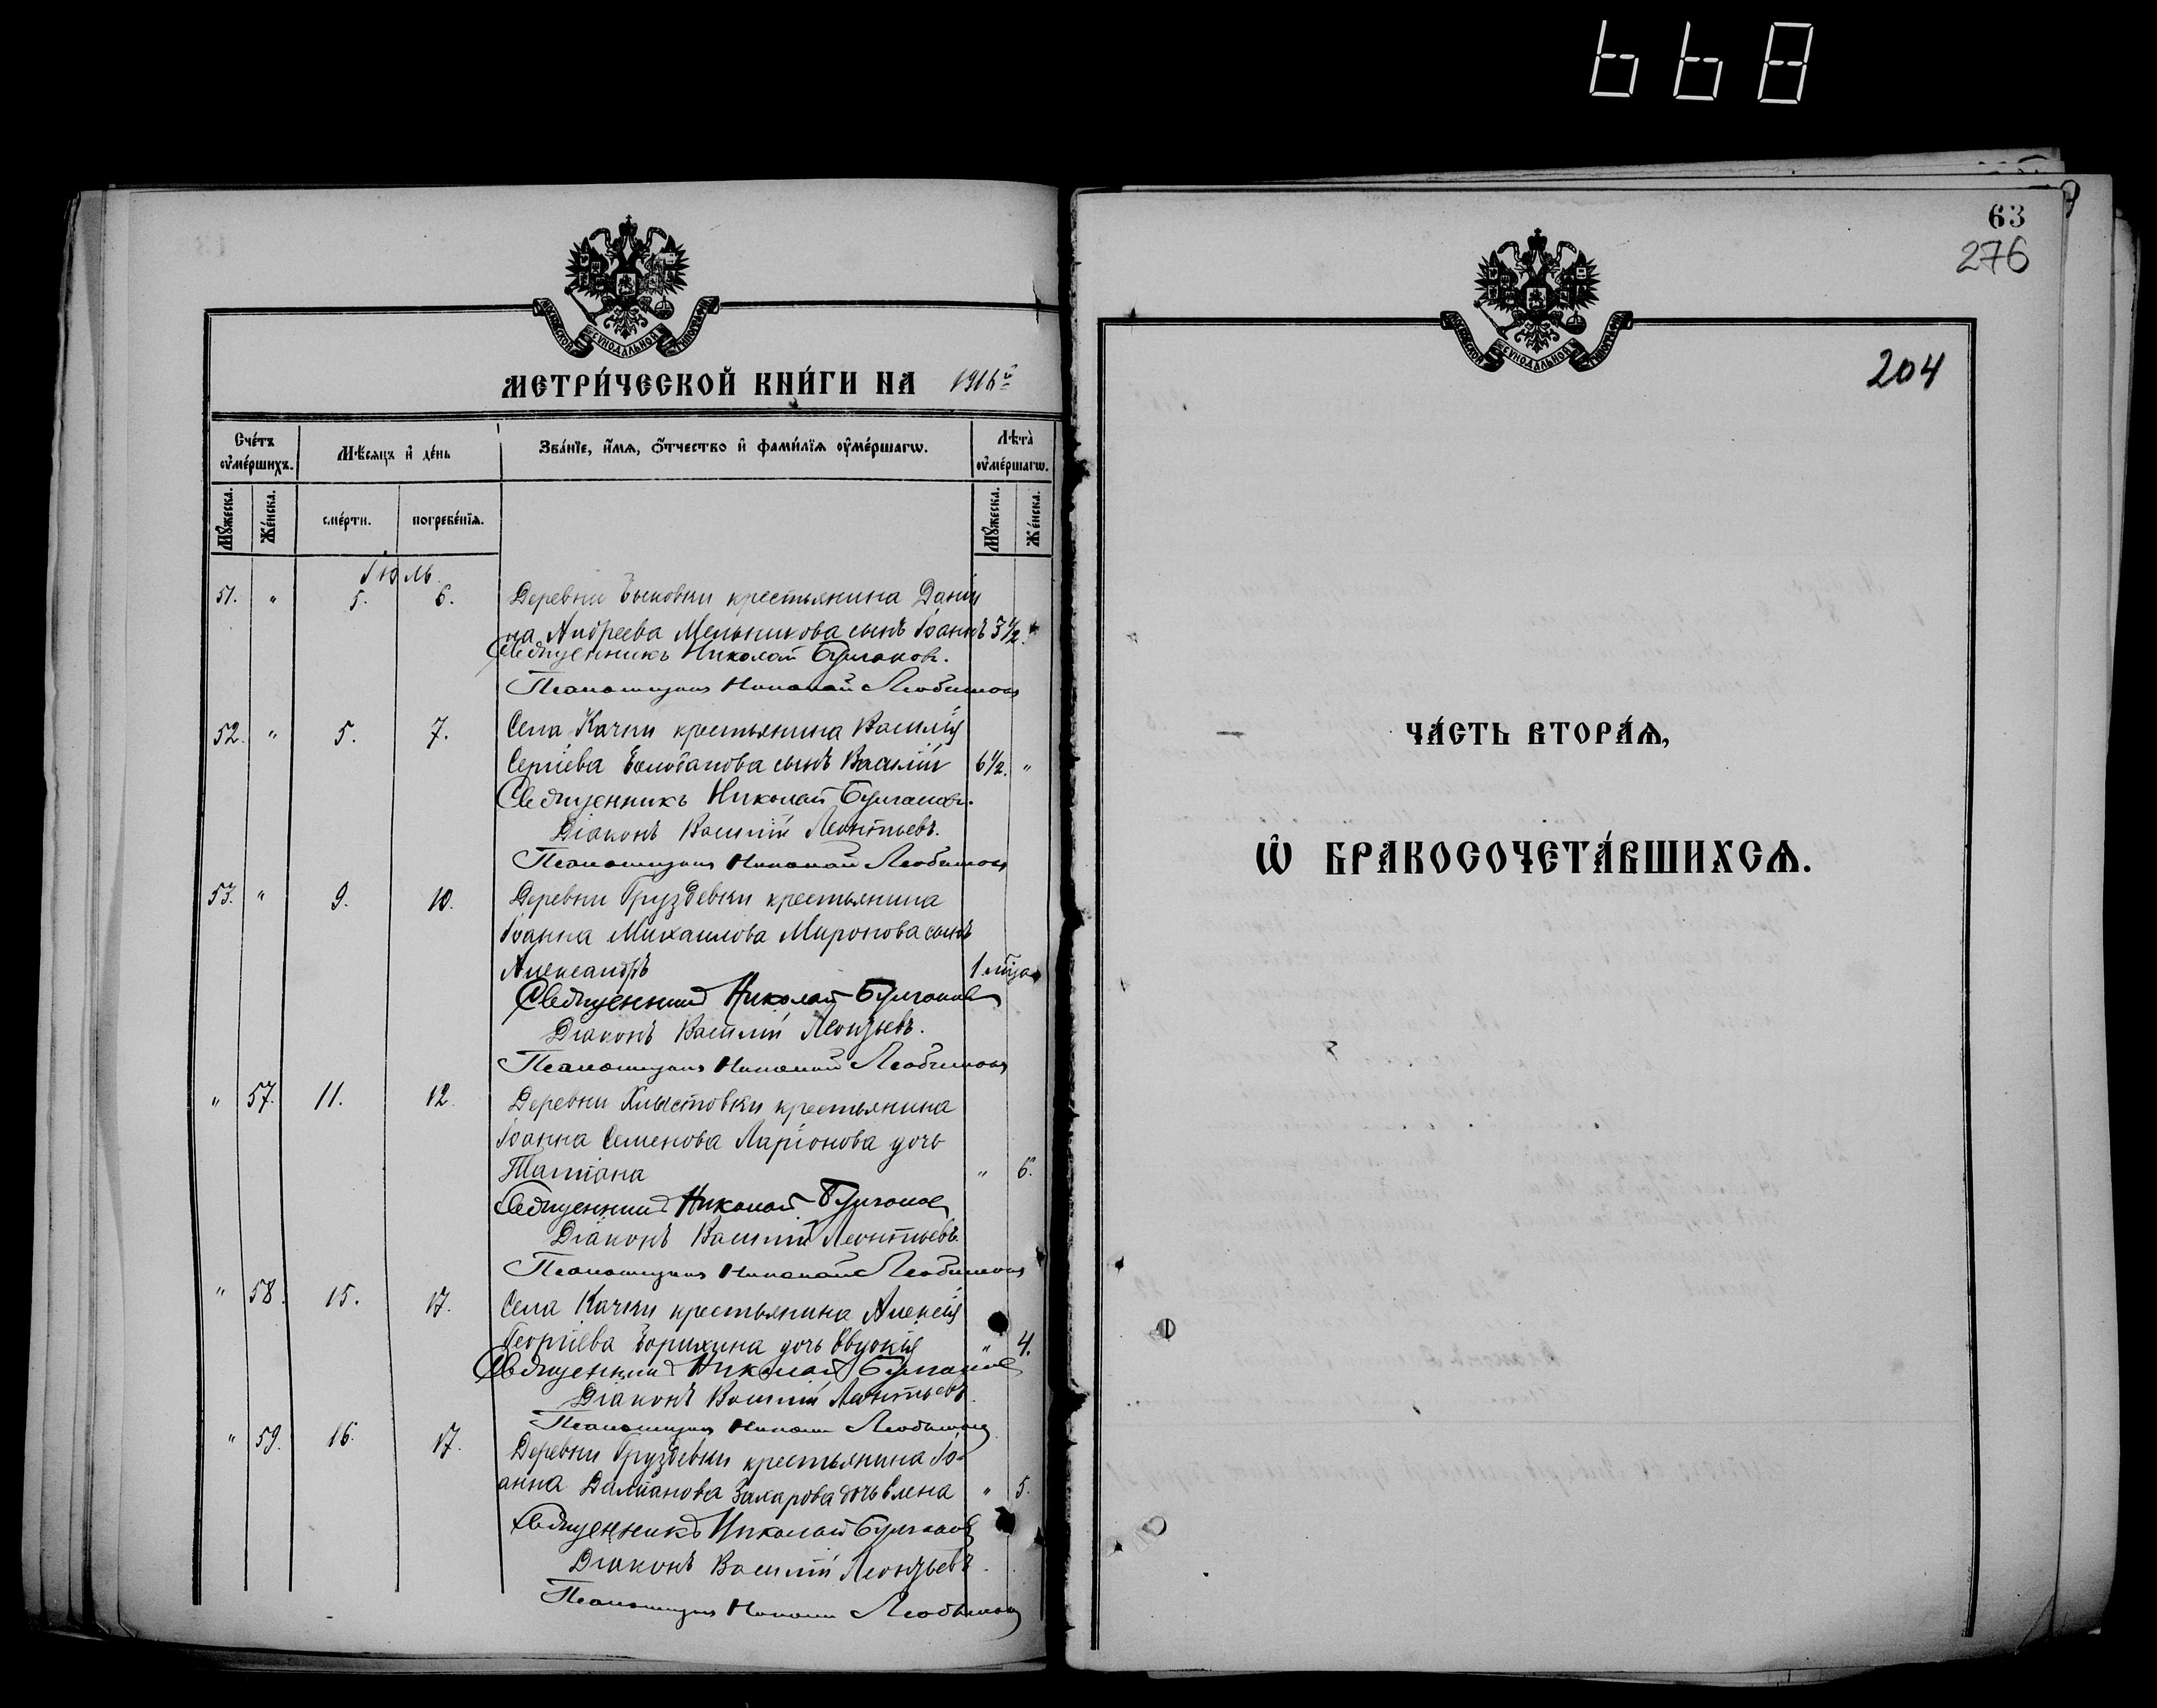 668
МОСКОВСКОЙ СѴНОДАЛЬНОЙ ТИПОГРАФІИ
МЕТРИ́ЧЕСКОЙ КНИ́ГИ НА 1916й
Сче́тъ оу҆ме́ршихъ.
Мѣ́сяцъ и҆ де́нь
Зва́нїе, и҆́мѧ, ѻ҆́тчество и҆ фами́лїѧ оу҆ме́ршагѡ.
Лѣта̀ оу҆ме́ршагѡ.
Мꙋ́жеска.
Же́нска.
сме́рти.
погребе́нїѧ.
Мꙋ́жеска.
Же́нска.
Іюль.
51. " 5. 6. Деревни Быковки крестьянина Дании
ла Андреева Мельникова сынъ Іоаннъ 3½. "
Священникъ Николай Булгаковъ.
Псаломщикъ Николай Любимовъ
52. " 5. 7. Села Качки крестьянина Василія
Сергіева Болобанова сынъ Василій 6½. "
Священникъ Николай Булгаковъ.
Діаконъ Василій Леонтьевъ.
Псаломщикъ Николай Любимовъ
53. " 9. 10. Деревни Груздевки крестьянина
Іоанна Михаилова Миронова сынъ
Александръ 1 мѣс.
Священникъ Николай Булгаковъ
Діаконъ Василій Леонтьевъ.
Псаломщикъ Николай Любимовъ
" 57. 11. 12. Деревни Хлыстовки крестьянина
Іоанна Семенова Ларіонова дочь
Татіана " 6.
Священникъ Николай Булгаковъ
Діаконъ Василій Леонтьевъ
Псаломщикъ Николай Любимовъ
" 58. 15. 17. Села Качки крестьянина Алексія
Георгіева Борихина дочь Евдокія " 4.
Священникъ Николай Булгаковъ
Діаконъ Василій Леонтьевъ
Псаломщикъ Николай Любимовъ
" 59. 16. 17. Деревни Груздевки крестьянина Іо-
анна Даміанова Захарова дочь Елена " 5.
Священникъ Николай Булгаковъ
Діаконъ Василій Леонтьевъ.
Псаломщикъ Николай Любимовъ
63
276
МОСКОВСКОЙ СѴНОДАЛЬНОЙ ТИПОГРАФІИ
204
ЧА́СТЬ ВТОРА́Ѧ,
Ѡ҆ БРАКОСОЧЕТА́ВШИХСѦ.